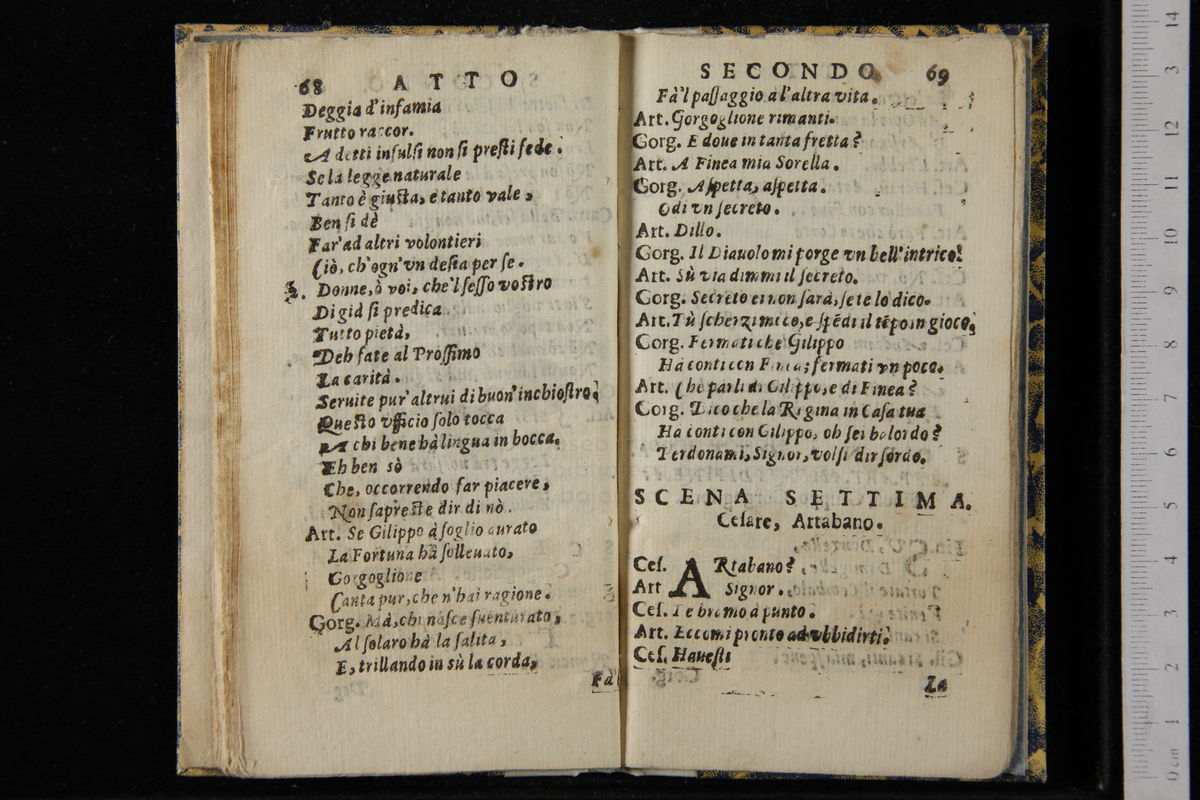 68 ATTO
Deggia d'infamia
Frutto raccor.
A detti insulsi non si presti fede.
Se la legge naturale
Tanto è giusta, e tanto vale,
Ben si dè
Far' ad altri volontieri
Ciò, ch'ogn'vn desia per se.
2. Donne, ò voi, che'l sesso vostro
Di già si predica
Tutto pietà,
Deh fate al Prossimo
La carità.
Seruite pur' altrui di buon' inchiostro;
Questo vfficio solo tocca
A chi bene hà lingua in bocca.
Eh ben sò
Che, occorrendo far piacere,
Non sapreste dir di nò.
Art. Se Gilippo à soglio aurato
La Fortuna hà solleuato,
Gorgoglione
Canta pur, che n'hai ragione.
Gorg. Mà, chi nasce suenturato,
Al solaro hà la salita,
E, trillando in sù la corda,
Fà'l
SECONDO 69
Fà'l passaggio a l'altra vita.
Art. Gorgoglione rimanti.
Gorg. E doue in tanta fretta?
Art. A Finea mia Sorella.
Gorg. Aspetta, aspetta.
Odi vn secreto.
Art. Dillo.
Gorg. Il Diauolo mi porge vn bell'intrico!
Art. Sù via dimmi il secreto.
Gorg. Secreto ei non sarà, se te lo dico.
Art. Tù scherzi meco, e spēdi il tēpo in gioco;
Gorg. Fermati che Gilippo
Hà conti con Finea; fermati vn poco.
Art. Che parli di Gilippo, e di Finea?
Gorg. Dico che la Regina in Casa tua
Ha conti con Gilippo, oh sei balordo?
Perdonami, Signor, volsi dir sordo.
SCENA SETTIMA.
Cesare, Artabano.
Ces. ARtabano?
Art Signor.
Ces. Te bramo à punto.
Art. Eccomi pronto ad vbbidirti.
Ces. Hauesti
La